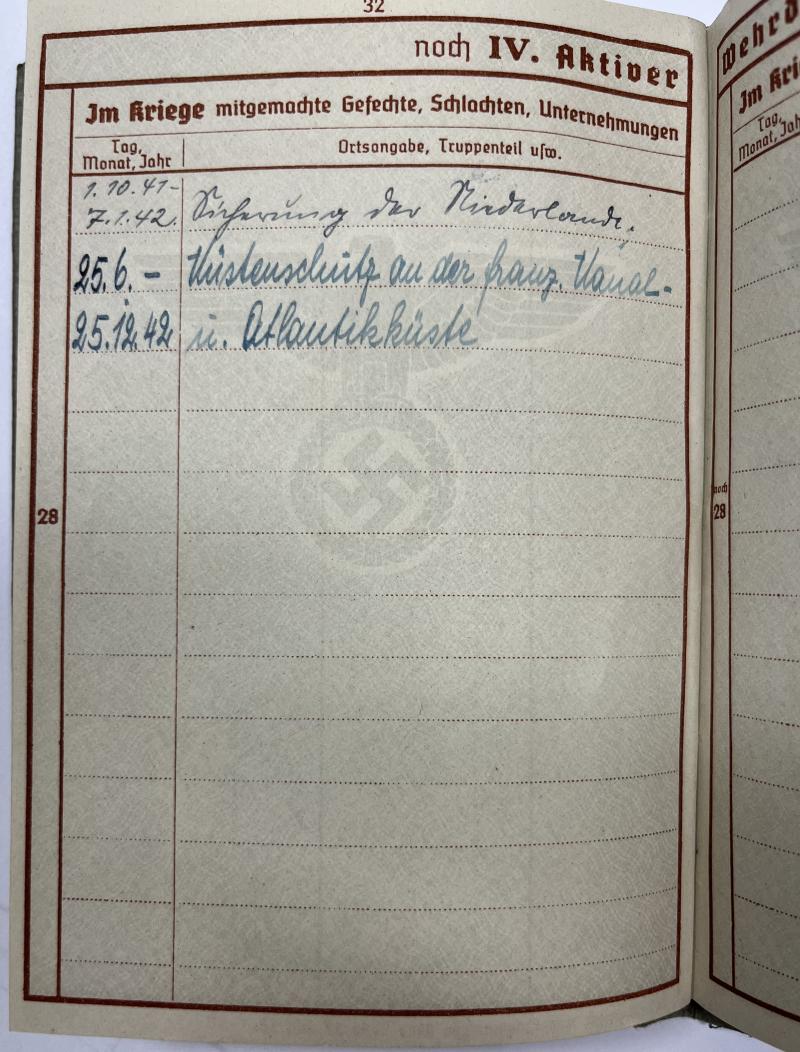 32
noch IV. Aktiver
Im Kriege mitgemachte Gefechte, Schlachten, Unternehmungen
Tag,
Monat, Jahr
Ortsangabe, Truppenteil usw.
1.10.41-
7.1.42. Sicherung der Niederlande.
25.6. - Küstenschutz an der franz. Kanal-
25.12.42 u. Atlantikküste
28
Wehrd
Im Kri
Tag,
Monat, Jah
noch
28